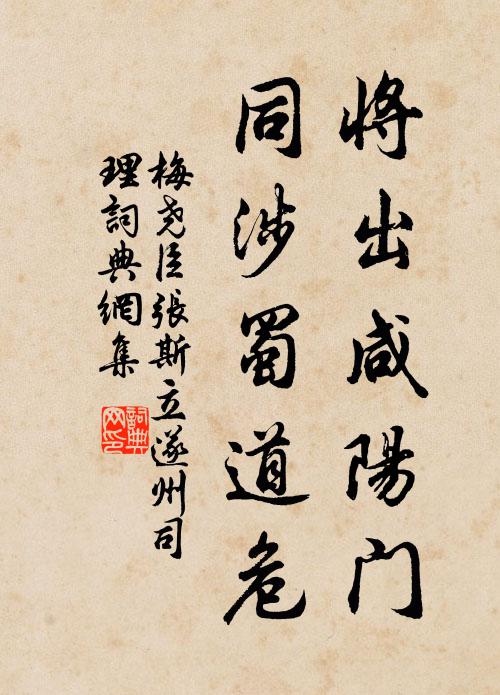 将出咸陽门
同涉蜀道危
梅尧臣張斯立遂州司
理詞典網集
詞典
网印